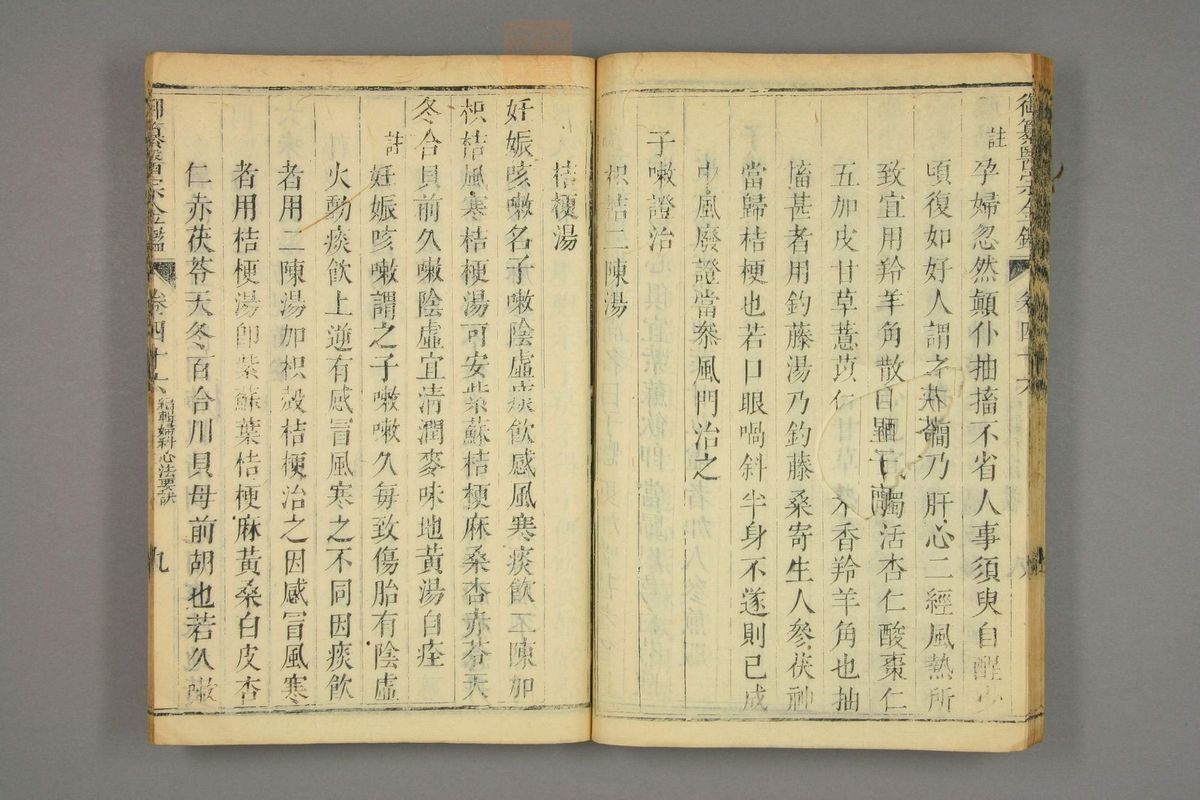 御纂醫宗金鑑 卷四十六
註
孕婦忽然顛仆抽搐不省人事須臾自醒少
頃復如好人謂之 乃肝心二經風熱所
致宜用羚羊角散 獨活杏仁酸棗仁
五加皮甘草薏苡仁 木香羚羊角也抽
搐甚者用釣藤湯乃釣藤桑寄生人參茯神
當歸桔梗也若口眼喎斜半身不遂則已成
中風廢證當叅風門治之
子嗽證治
枳桔二陳湯
桔梗湯
妊娠咳嗽名子嗽陰虛痰飲感風寒痰飲二陳加
枳桔風寒桔梗湯可安紫蘇桔梗麻桑杏赤苓天
冬合貝前久嗽陰虛宜清潤麥味地黃湯自痊
註
妊娠咳嗽謂之子嗽嗽久每致傷胎有陰虛
火動痰飲上逆有感冒風寒之不同因痰飲
者用二陳湯加枳殼桔梗治之因感冒風寒
者用桔梗湯卽紫蘇葉桔梗麻黃桑白皮杏
仁赤茯苓天冬百合川貝母前胡也若久嗽
御纂醫宗金鑑 卷四十六 編輯婦科心法要訣 九